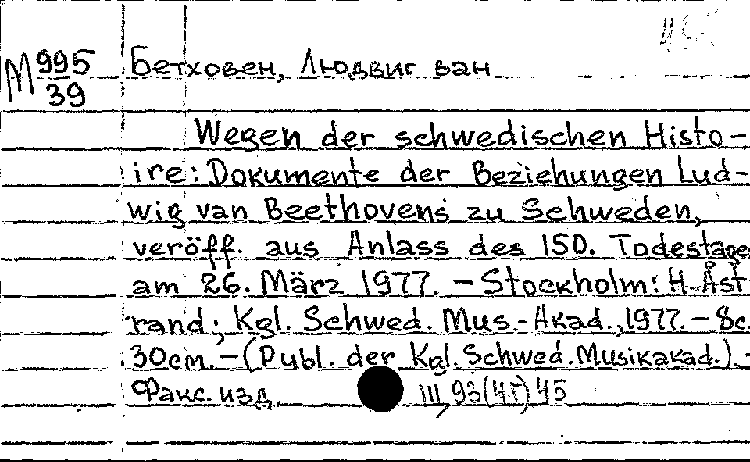 М 995/39
Бетховен, Людвиг ван
Wegen der schwedischen Histo-
ire: Dokumente der Beziehungen Lud-
wig van Beethovens zu Schweden,
veröff. aus Anlass des 150. Todestages
am 26. März 1977. - Stockholm: H. Åst
rand; Kgl. Schwed. Mus.-Akad., 1977. - 8c.
30cm. - (Publ. der Kgl. Schwed. Musikakad.). -
Факс. изд.